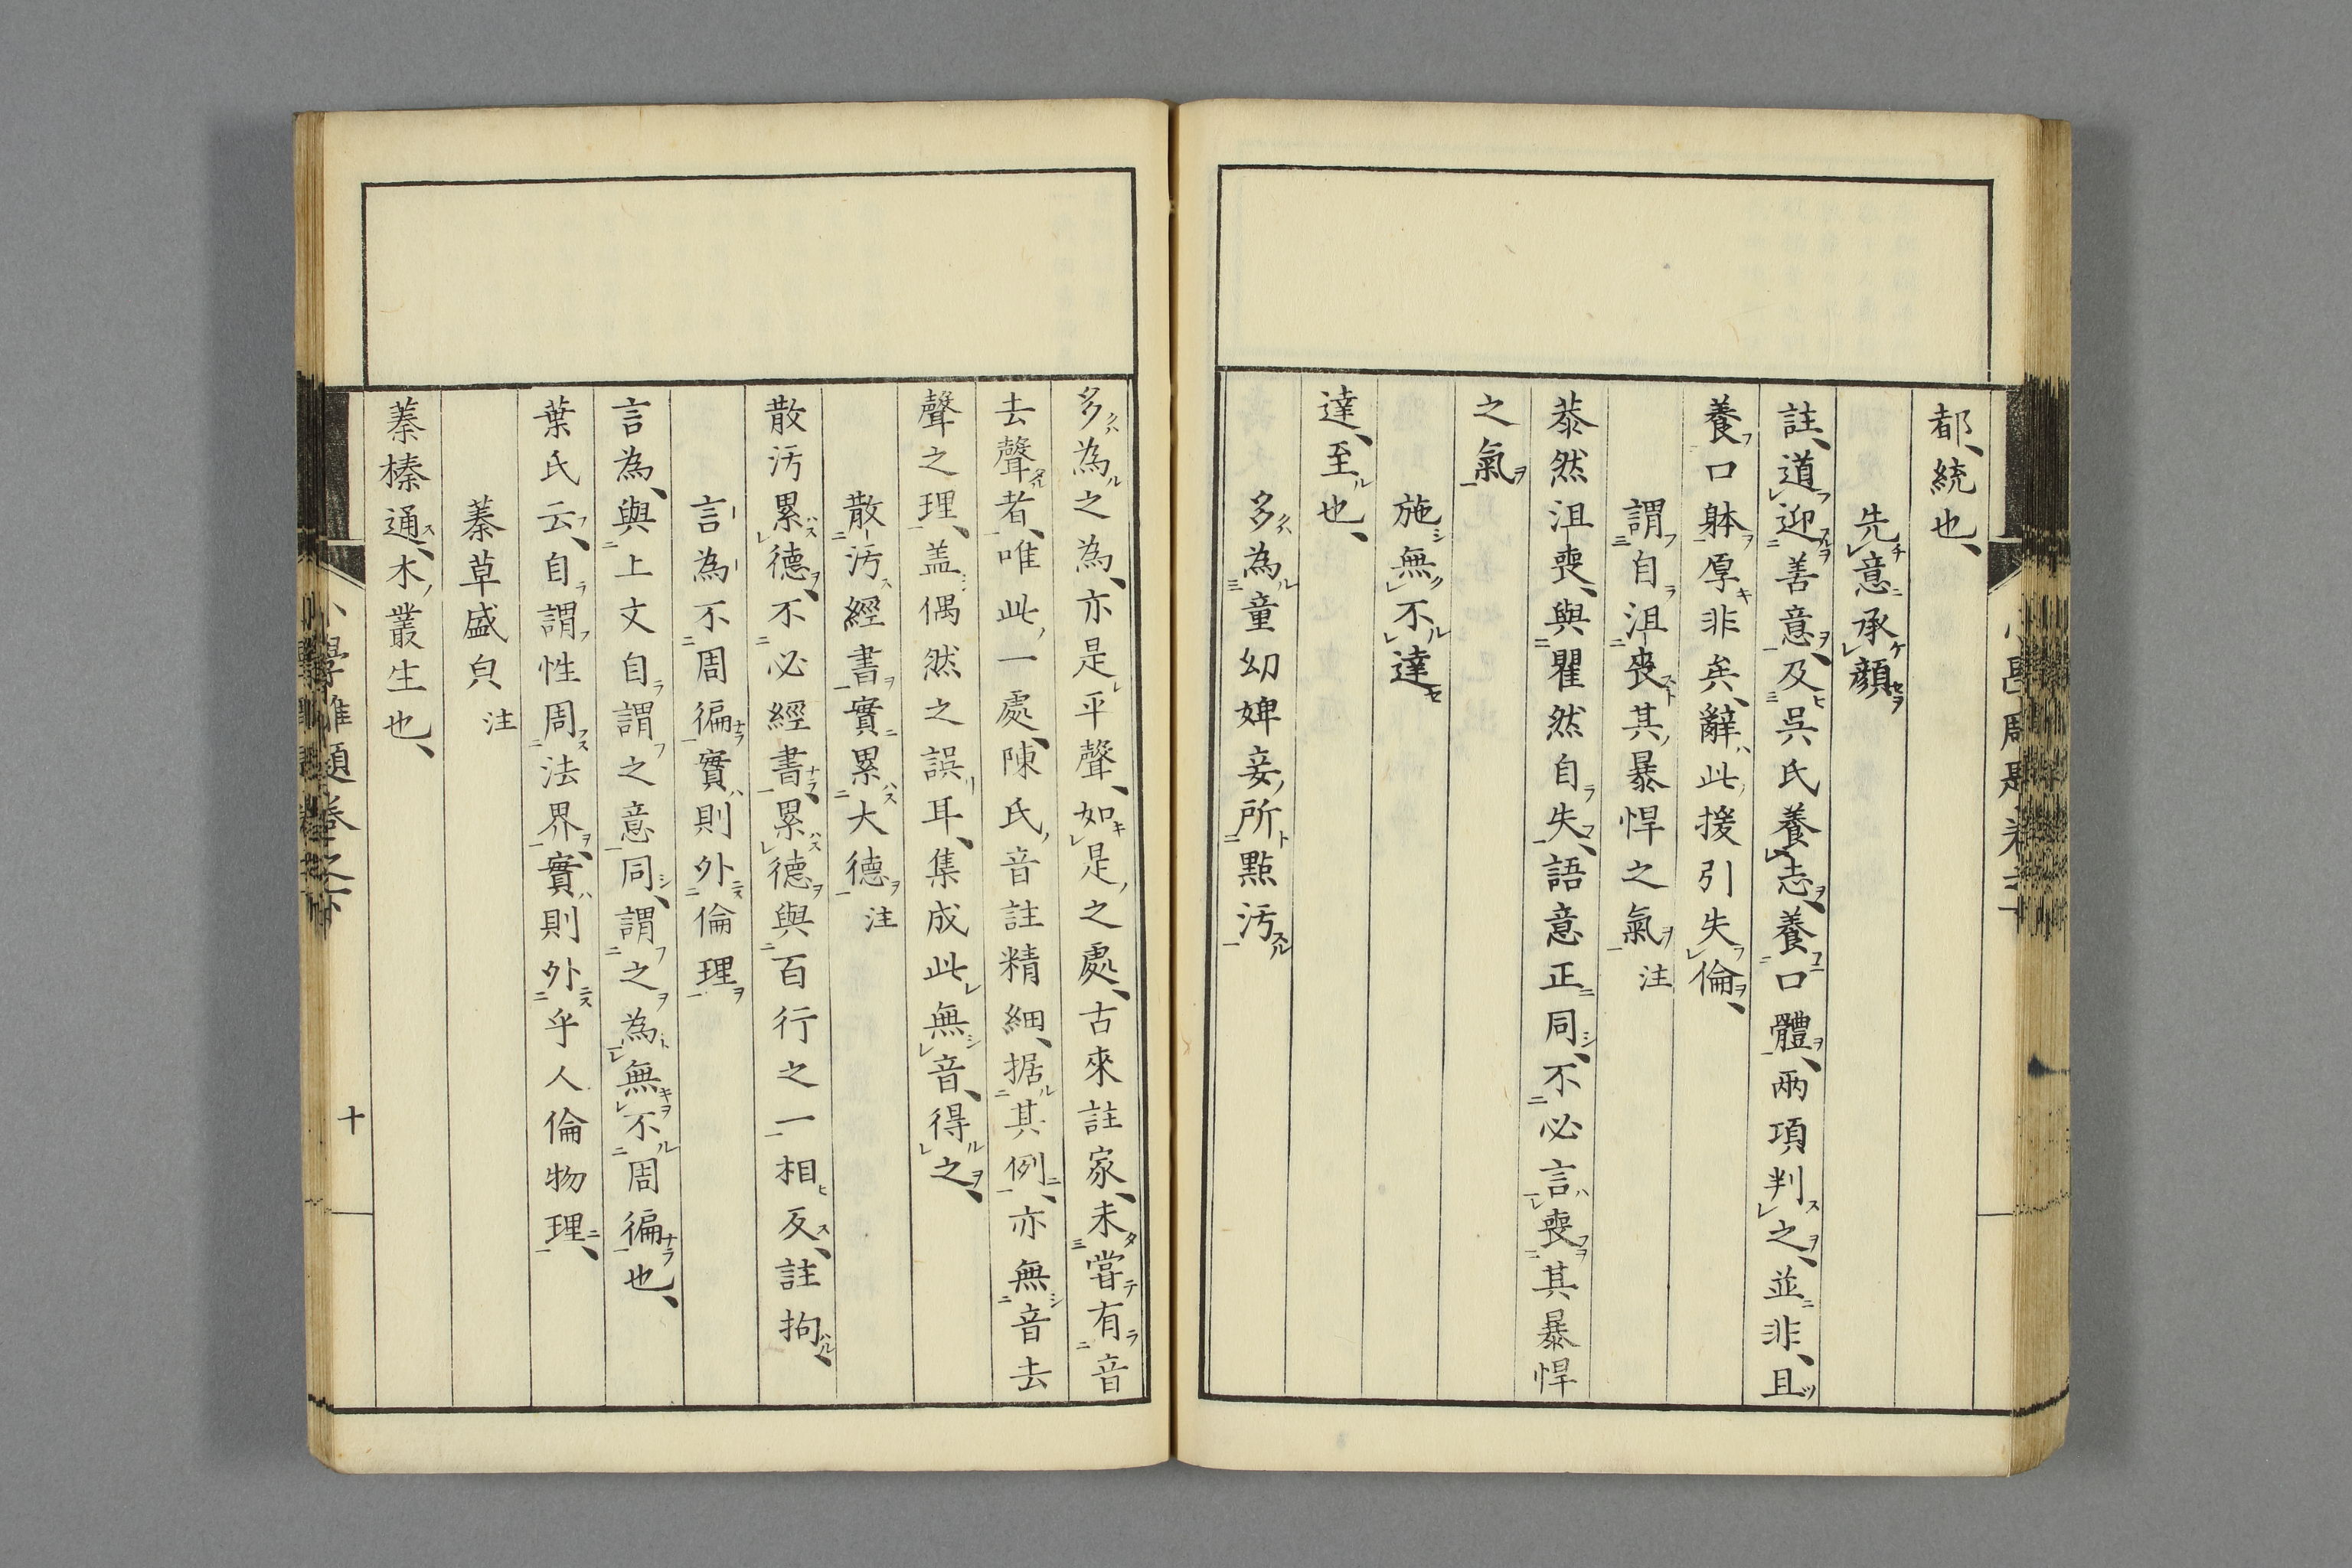 都、統也、
先意承顏
註、道迎善意、及吳氏養志、養口體、兩項判之、並非、且
養口躰厚非矣、辭此援引失倫、
謂自沮喪其暴悍之氣注
恭然沮喪、與瞿然自失、語意正同、不必言喪其暴悍
之氣
施無不達
達、至也、
多為童幼婢妾所點汚
多為之為、亦是平聲、如是之處、古來註家、未嘗有音
去聲者、唯此一處、陳氏音註精細、据其例、亦無音去
聲之理、盖偶然之誤耳、集成此無音、得之、
散汚經書實累大德注
散汚累德、不必經書、累德與百行之一相反、註拘、
言為不周徧實則外倫理
言為、與上文自謂之意同、謂之為無不周徧也、
葉氏云、自謂性周法界、實則外乎人倫物理、
蓁草盛皃注
蓁榛通、木叢生也、
十